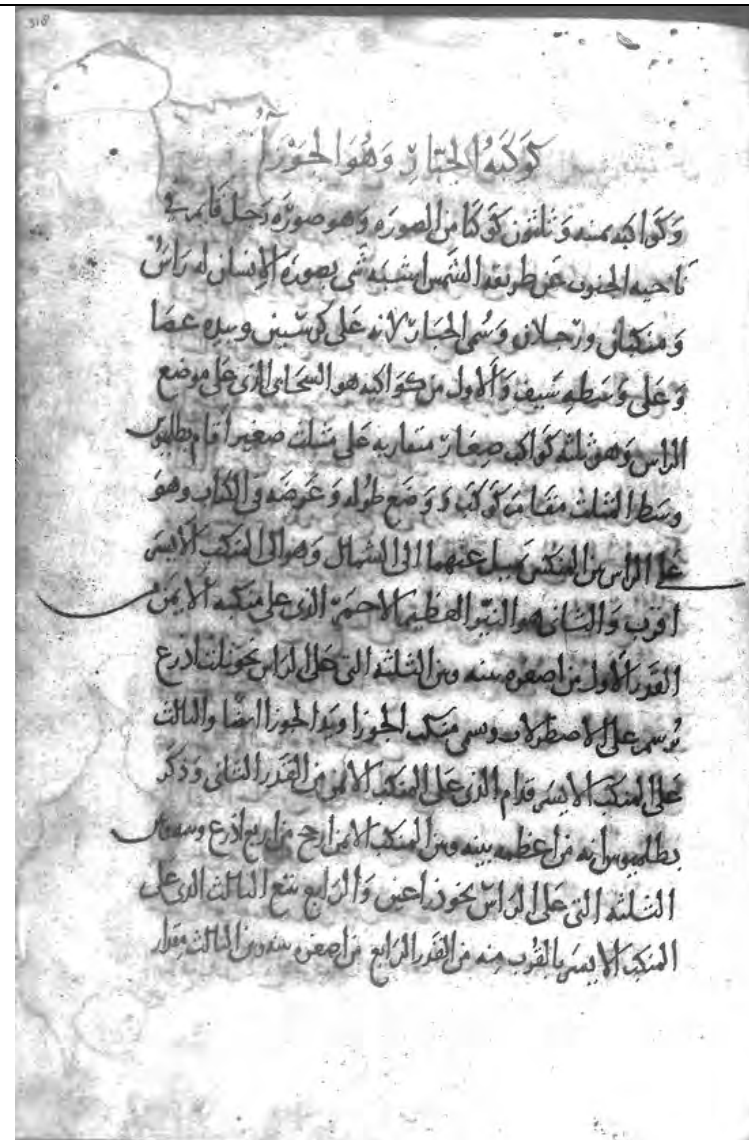 318
كوكبة الجبار وهو الجوزآ
وكواكبه ثمنيه وثلثون كوكبا من الصوره وهو صورة رجل قايم في
ناحيه الجنوب عن طريقه الشمس اشبه شي بصورة الانسان له راس
ومنكبان ورجلان وسمي الجبار لانه على كرسيين وبيده عصا
وعلى وسطه سيف والاول من كواكبه هو السحابي الذي على موضع
الراس وهو ثلثه كواكب صغار متقاربه على مثلث صغير اقام بطلميوس
وسط المثلث مقام كوكب ووضع طوله وعرضه في الكتاب وهو
على الراس بين المنكبين يميل عنهما الى الشمال وهو الى المنكب الايسر
اقرب والثاني هو النير العظيم الاحمر الذي على منكبه الايمن
القدر الاول من اصغره بينه وبين الثلثه التي على الراس نحو ثلث اذرع
يرسم على الاصطرلاب وسمي منكب الجوزا ويد الجوزا ايضا والثالث
على المنكب الايسر قدام الذي على المنكب الايمن من القدر الثاني وذكر
بطلميوس انه من اعظمه بينه وبين المنكب الايمن ارجح من اربع اذرع وبينه وبين
الثلثه التي على الراس نحو ذراعين والرابع يتبع الثالث الذي على
المنكب الايسر بالقرب منه من القدر الرابع من اصغره بينه وبين الثالث مقدار